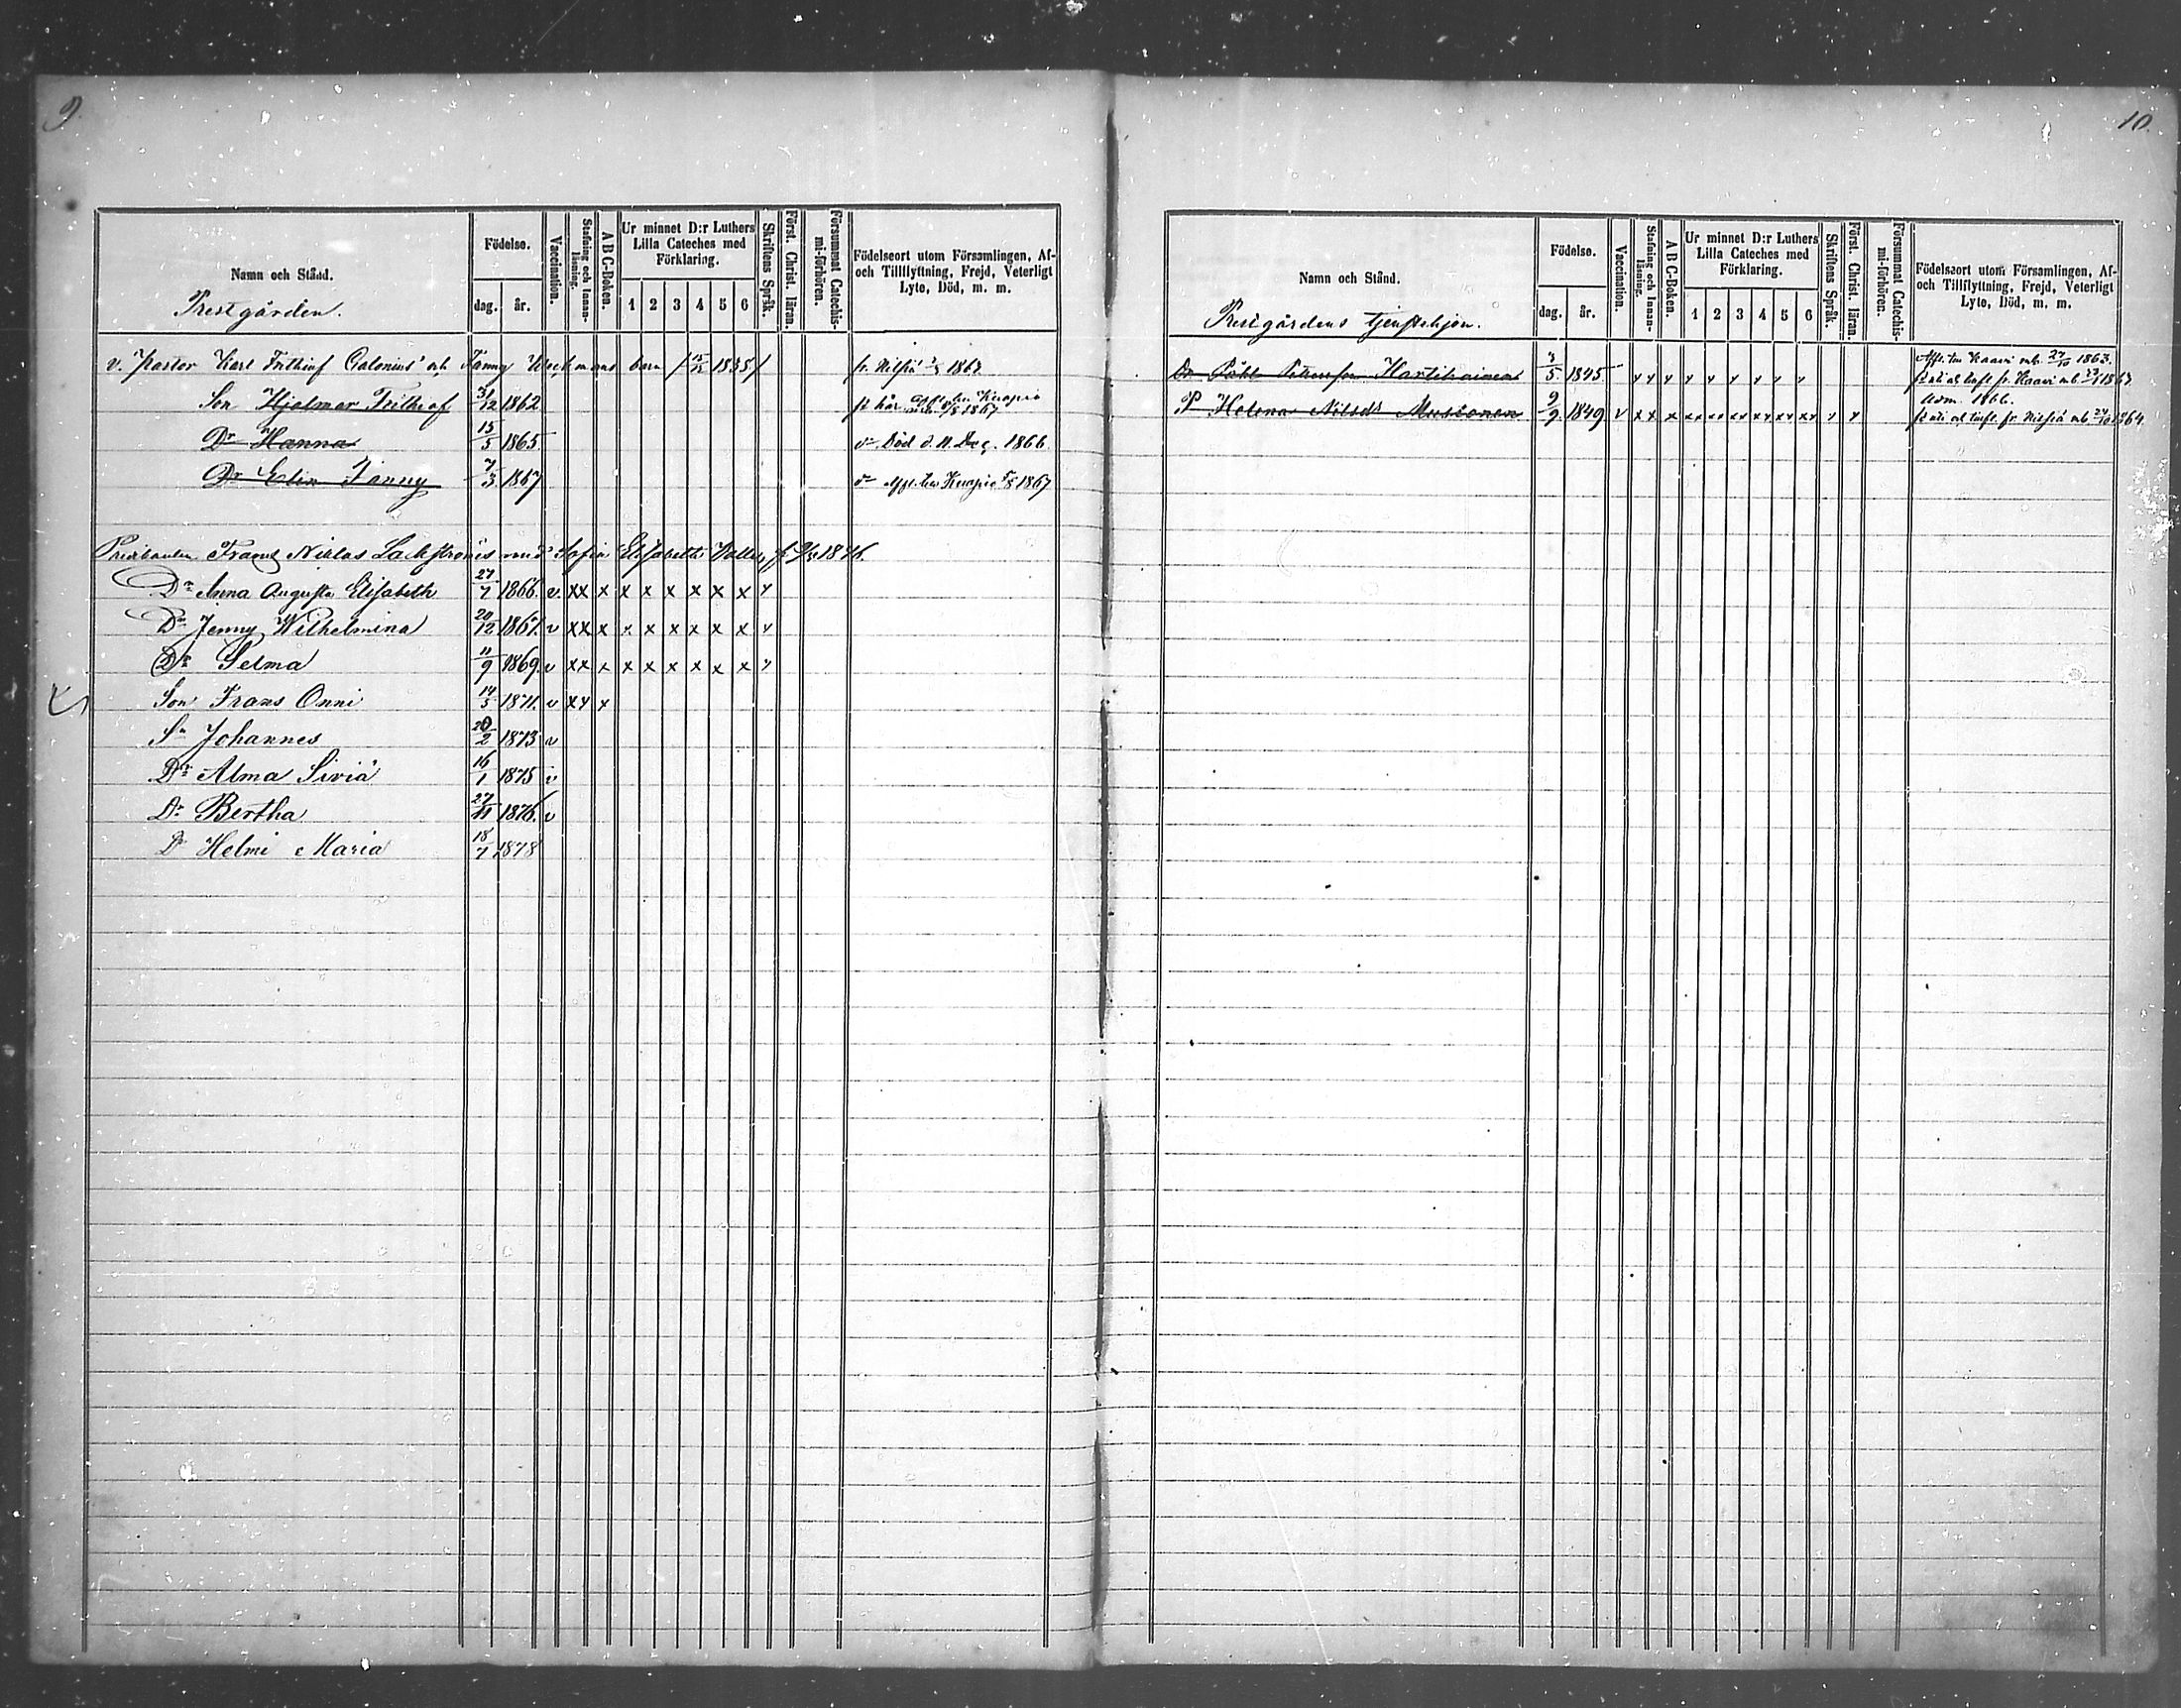 9.
Namn och Stånd.
Prestgården.
Födelse.
dag. år.
Vaccination.
Stafning och Innan-läsning.
A B C-Boken.
Ur minnet D:r Luthers
Lilla Cateches med
Förklaring.
1 2 3 4 5 6
Skriftens Språk.
Först. Christ. läran.
Försummat Catechis-mi-förhören.
Födelseort utom Församlingen, Af-
och Tillflyttning, Frejd, Veterligt
Lyte, Död, m. m.
v. Pastor Karl Frithiof Calonius och Fanny barn 1835 fr. Nilsiä 1867
Son Hjalmar Frithiof 31/12 1862 här Kuopio 1867
Dr Hanna 15/5 1865. Död d. 11 Dec. 1866
Dr Elin Fanny 7/3 1867 Kuopio 1867
Frans Niklas Sofia Elisabeth 1846.
Dr Anna Augusta Elisabeth 27/7 1866. v. xx x x x x x x x x
Dr Jenny Wilhelmina 20/12 1867. v xx x x x x x x x x
Dr Selma 11/9 1869. v xx x x x x x x x x
Son Frans Onni 14/5 1871. v xx x
Sn Johannes 20/2 1873 v
Dr Alma Siviä 16/1 1875 v
Dr Bertha 27/11 1876. v
Dr Helmi Maria 18/7 1878
10.
Namn och Stånd.
Prestgårdens tjenstehjon.
Födelse.
dag. år.
Vaccination.
Stafning och Innan-läsning.
A B C-Boken.
Ur minnet D:r Luthers
Lilla Cateches med
Förklaring.
1 2 3 4 5 6
Skriftens Språk.
Först. Christ. läran.
Försummat Catechis-mi-förhören.
Födelseort utom Församlingen, Af-
och Tillflyttning, Frejd, Veterligt
Lyte, Död, m. m.
Kaavi 1863.
Dr Påhl Hartikainen 3/5 1845. x x x x x x x x x fr. Kaavi
Adm. 1866.
P Helena Nilsdr Mustonen 9/9 1849 v xx x xx xx xx xx xx xx x x fr. Nilsiä 1864